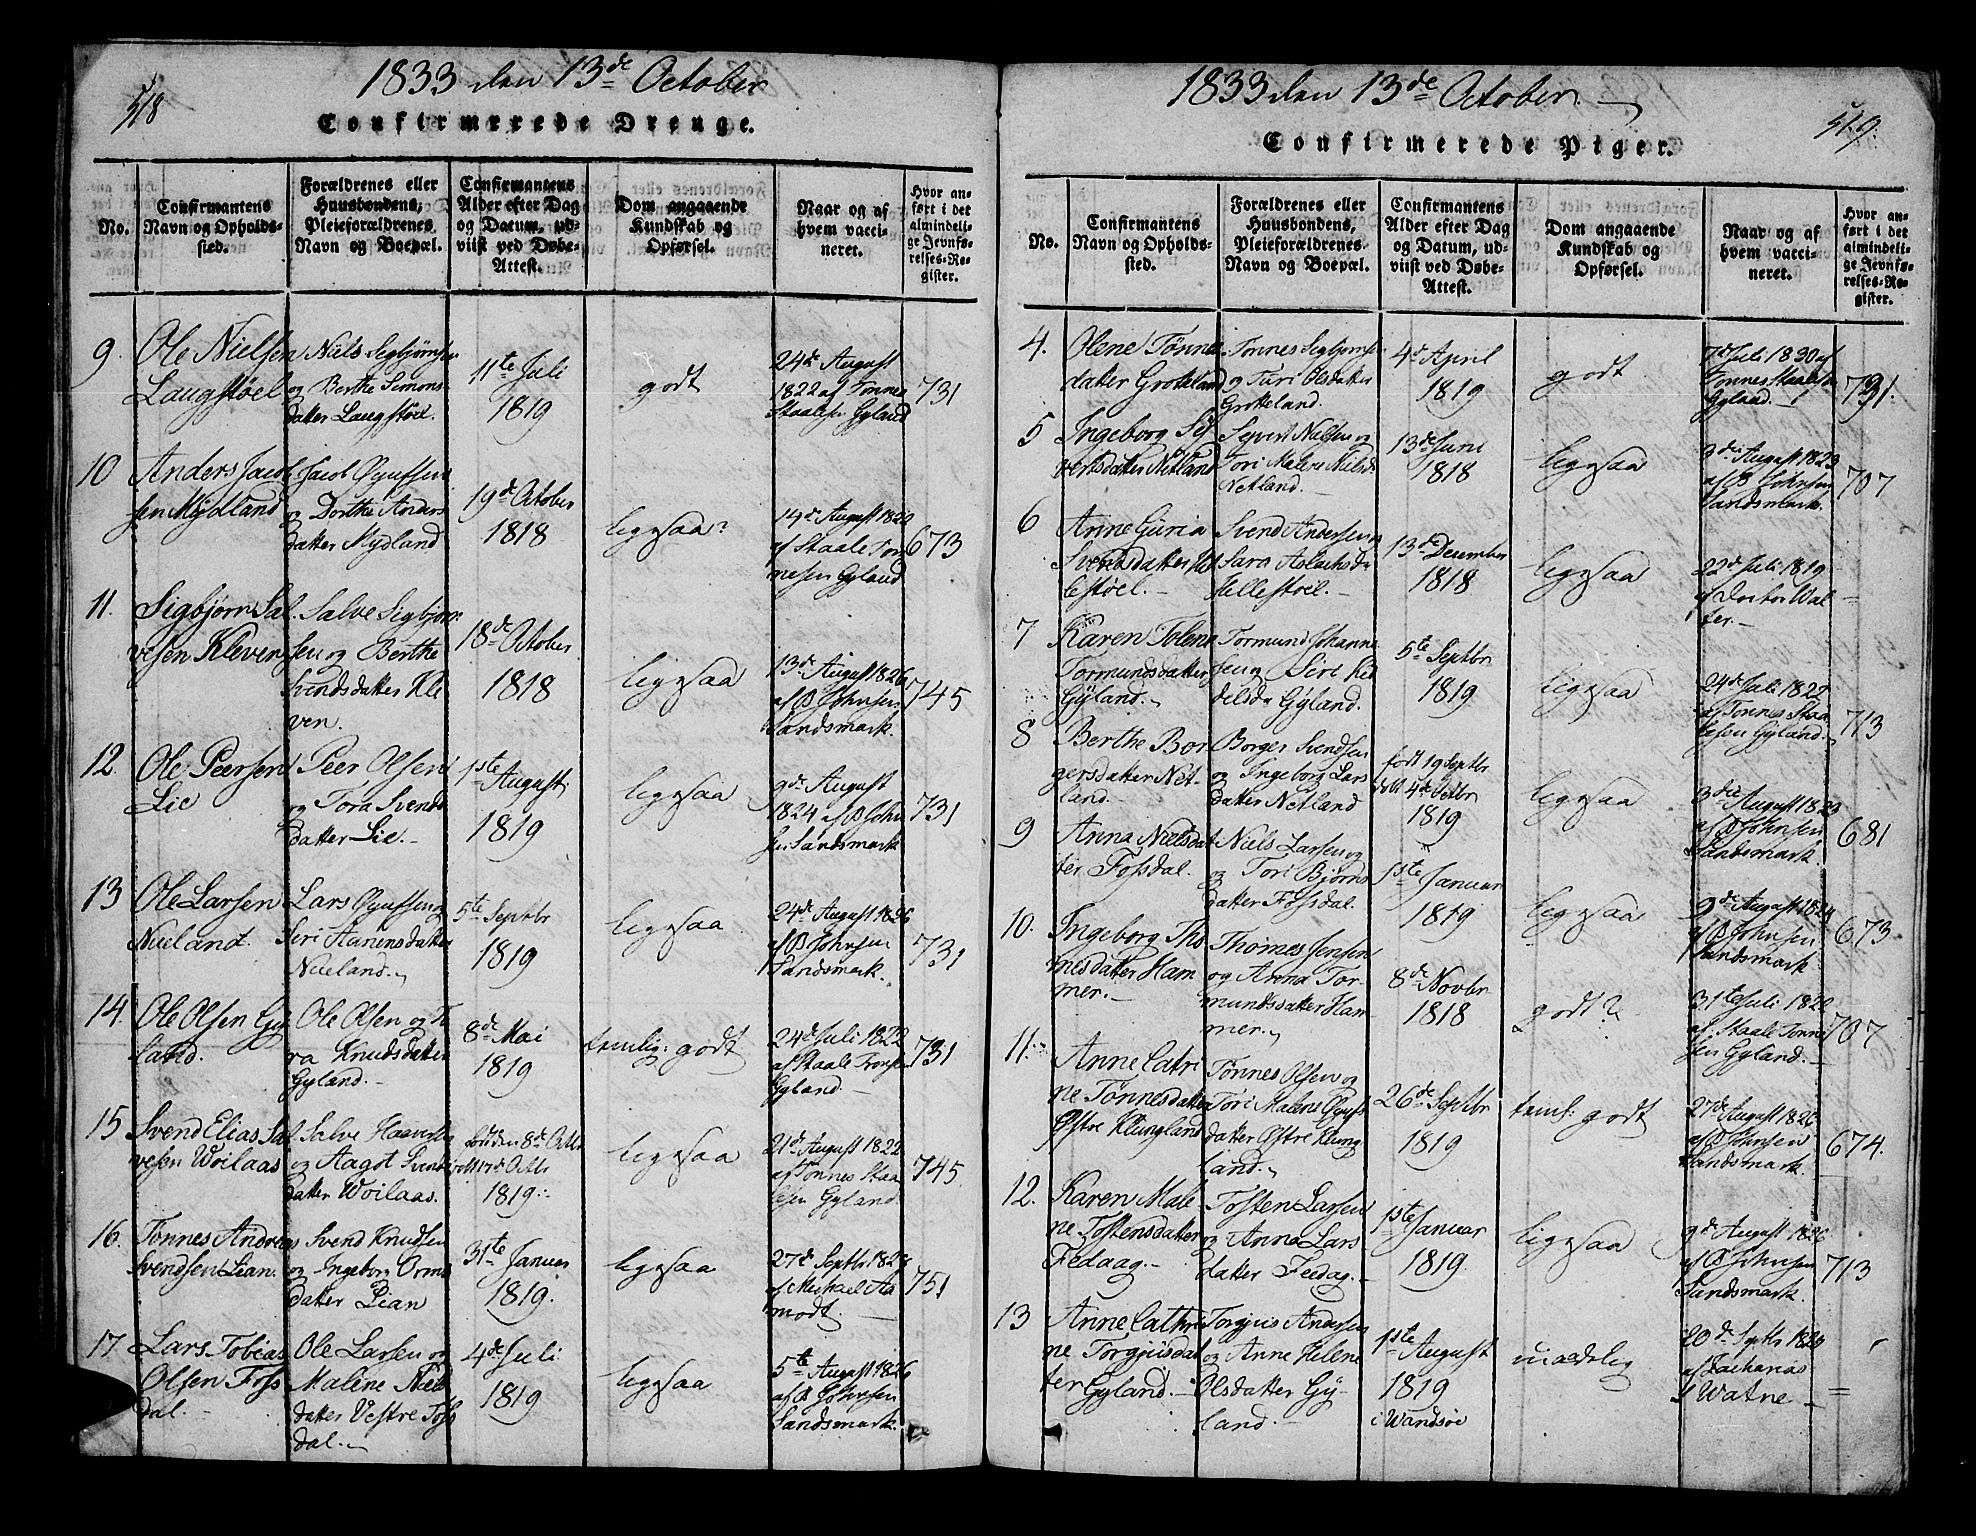 518
1833 den 13de October
Confirmerede Drenge.
No.
Confirmantens
Navn og Opholds-
sted.
Forældrenes eller
Huusbondens,
Pleieforældrenes
Navn og Boepæl.
Confirmantens
Alder efter Dag
og Datum, ud-
viist ved Døbe-
Attest.
Dom angaaende
Kundskab og
Opførsel.
Naar og af
hvem vacci-
neret.
Hvor an-
ført i det
almindeli-
ge Jevnfø-
relses-Re-
gister.
9.
Ole Nielsen
Laugstøel
Niels Segbjørnsen
og Berthe Simons-
datter Laugstøel.
11te Juli
1819
godt
24de August
1822 af Tønnes
Staalesen Gyland
731
10
Anders Jacob
sen Mydland
Jacob Gjufsen
og Dorthe Anders
datter Mydland
19de October
1818
ligesaa?
14de August 1820
af Staale Tøn
nesen Gyland
673
11.
Sigbjørn Sal
vesen Kleven
Salve Sigbjørn
sen og Berthe
Svendsdatter Kle
ven.
18de October
1818
ligesaa
13de August 1826
af B Johnsen
Sandsmark.
745
12.
Ole Peersen
Lie
Peer Olsen
og Tora Svends
datter Lie.-
1ste August
1819
ligesaa
9de August
1824 af B John
sen Sandsmark
731
13
Ole Larsen
Nueland.
Lars Gjufsen og
Siri Aanensdatter
Nueland.
5te Septbr
1819
ligesaa
24de August 1826
af B Johnsen
Sandsmark.
731
14.
Ole Olsen Gy
land.
Ole Olsen og To
ra Knudsdatter
Gyland.-
8de Mai
1819
temlig: godt
24de Juli 1822
af Staale
Gyland.-
731
15
Svend Elias Sal
vesen Woilaas
Salve Haaversen
og Aagot Svends
datter Woilaas.
født den 8de Octbr
døbt 17de Octbr
1819.
ligesaa
21de August 1822
af Tønnes Staa
lesen Gyland
745.
16.
Tønnes Andreas
Svendsen Lian.
Svend Knudsen
og Ingeborg Orms
datter Lian
31te Januar
1819.
ligesaa
27de Septbr 1823
af Michael Aa
modt.
751
17.
Lars Tobias
Olsen Foss
dal.-
Ole Larsen og
Maline Niels
datter Vestre Foss
dal.-
4de Juli
1819
ligesaa
5te August 1826
af B Johnsen
Sandsmark.
1833 den 13de October.
519.
Confirmerede Piger.
No.
Confirmantens
Navn og Opholds-
sted.
Forældrenes eller
Huusbondens,
Pleieforældrenes
Navn og Boepæl.
Confirmantens
Alder efter Dag
og Datum, ud-
viist ved Døbe-
Attest.
Dom angaaende
Kundskab og
Opførsel.
Naar og af
hvem vacci-
neret.
Hvor an-
ført i det
almindeli-
ge Jevnfø-
relses-Re-
gister.
4.
Olene Tønnes
datter Grøteland
Tønnes Segbjørnsen
og Turi Olsdatter
Grøtteland.
4de April
1819
godt.
7de Juli 1830 af
Tønnes Staalesen
Gyland.-
731.
5
Ingeborg Sy
vertsdatter Netland
Syvert Nielsen og
Tori Malene Nielsd
Netland.-
13de Juni
1818
ligesaa
9de August 1823
af B Johnsen
Sandsmark.
707
6
Anne Guria
Svendsdatter Hel
lestøel.-
Svend Andersen og
Sara Aslachsdr
Hellestøel.-
13de December
1818
ligesaa
22de Juli 1819
af Doctor Wal
ter.-
=
7
Karen Tolena
Tormundsdatter
Gyland.
Tormund Johanne
sen og Siri Ked
delsdr Gyland.
5te Septbr
1819
ligesaa
24de Juli 1822
af Tønnes Staa
lesen Gyland.
713
8
Berthe Bør
gersdatter Net-
land.-
Børger Svendsen
og Ingeborg Lars
datter Netland
født 19 Septbr
døbt 4de Octbr
1819
ligesaa
13de August 1823
af B Johnsen
Sandsmark.
681
9
Anna Nielsdat
ter Fossdal.
Niels Larsen og
og Tori Bjørns
datter Fossdal.
1ste Januar
1819
ligesaa
9de August 1824
af B Johnsen
Sandsmark
673
10.
Ingeborg Tho
mesdatter Ham
mer.-
Thomes Jensen
og Anna Tor-
mundsdatter Ham
mer.
8de Novbr
1818
godt?
31te Juli 1820
af Staale Tønne
sen Gyland.
707
11.
Anne Catri
ne Tønnesdatter
Østre Klungland
Tønnes Olsen og
Tori Malene Gjufs
datter Østre Klung
land.
26de Septbr
1819
teml: godt
27de August 1826
af B Johnsen
Sandsmark.
674.
12.
Karen Male
ne Tostensdatter
Fedaag.-
Tosten Larsen
og Anna Lars
datter Fedag.-
1ste Januar
1819.
ligesaa
9de August 1826
af B Johnsen
Sandsmark.
713
13
Anne Cathri
ne Torgjusdat
ter Gyland.-
Torgjus Andersen
og Anne Helene
Olsdatter Gy-
land.-
1ste August
1819
i Wandsøe
maadelig
20de Septbr
af Zacharias
Watne-
=